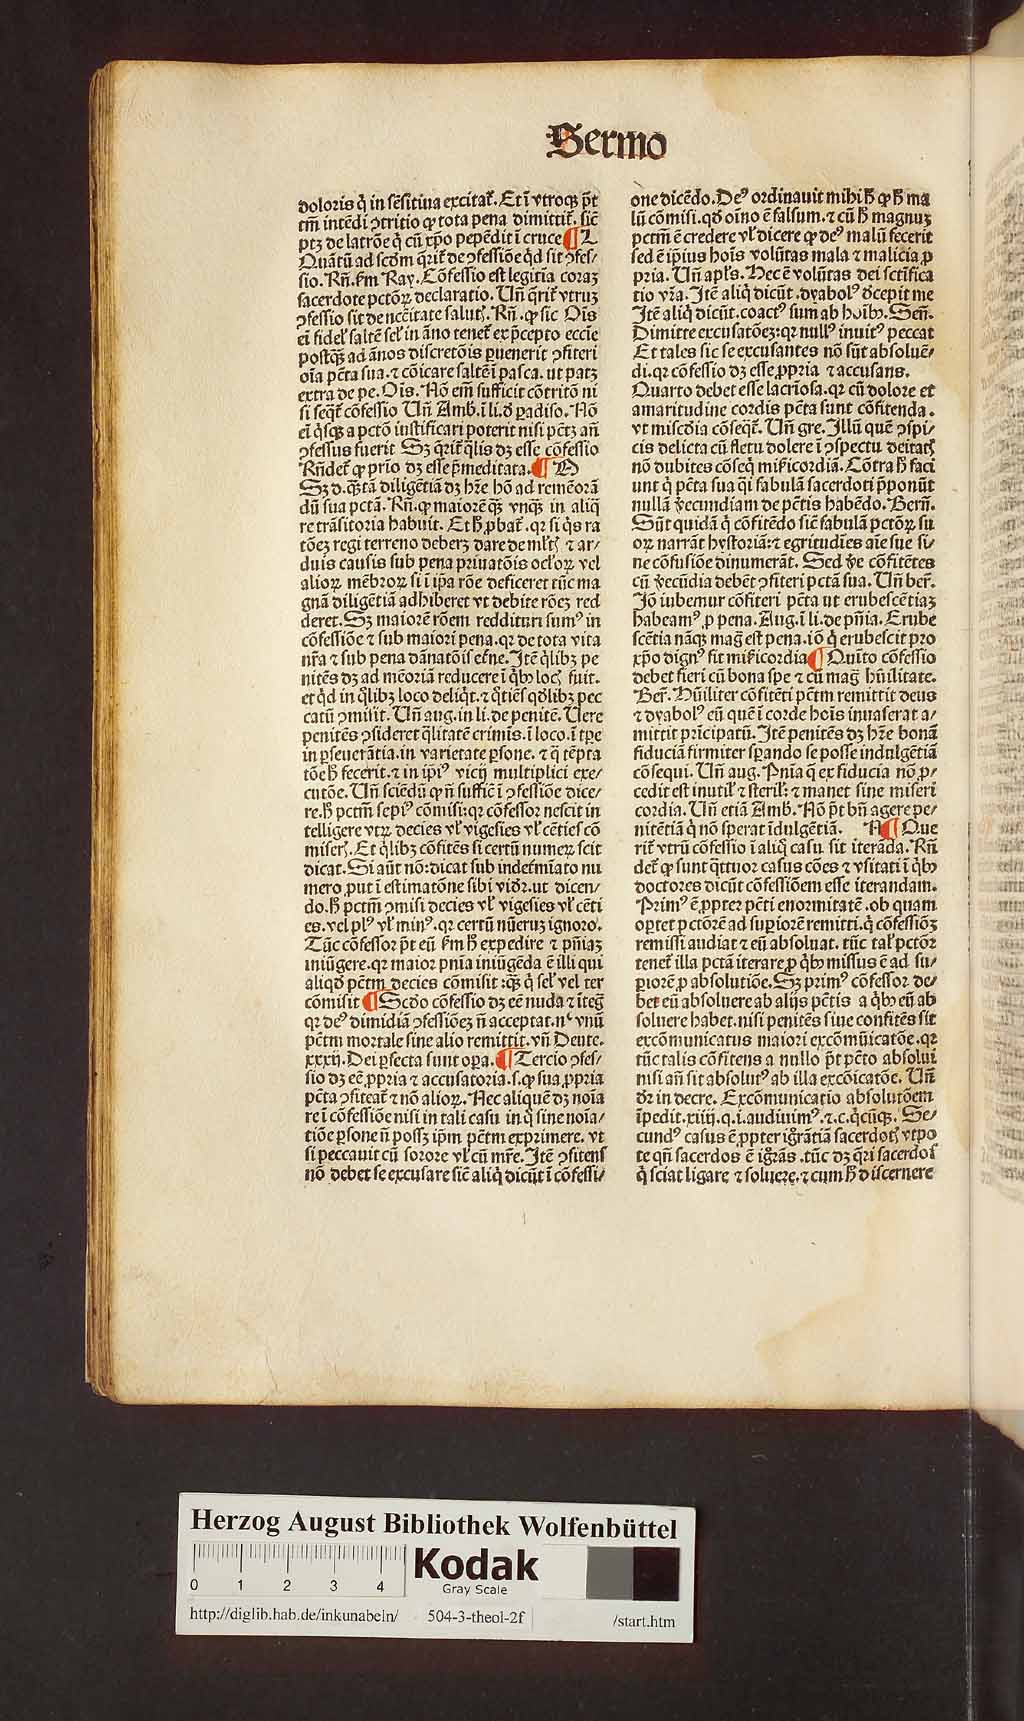 Sermo
doloris q̇ in sēsitiua excitat᷑. Et ī vtroqȝ p̄t
tm̄ intēdi ↄtritio ꝙ tota pena dimittit᷑. sic̄
ptȝ de latrōe q̇ cū xp̄o pepēdit ī cruce ¶ L
Quātū ad scd̄m q̄rit᷑ de ↄfessiōe qḋ sit ↄfes⸗
sio. Rn̄. ẜm Ray. Cōfessio est legitīa coraȝ
sacerdote pctōꝝ declaratio. Un̄ q̄rit᷑ vtruȝ
ↄfessio sit de nccītate saluti᷒. Rn̄. ꝙ sic Oīs
em̄ fidel᷒ saltē sel᷒ in āno tenet᷑ ex p̄cepto eccīe
postqȝ ad ānos discretōis ꝑuenerit ↄfiteri
oīa pctā sua. ⁊ cōicare saltē ī pasca. ut patȝ
extra de pe. Oīs. Nō em̄ sufficit cōtritō ni
si seqt᷑ cōfessio Un̄ Amb. ī li. ꝺ̄ ꝑadiso. Nō
em̄ q̇sqȝ a pctō iustificari poterit nisi pctȝ an̄
ↄfessus fuerit Sȝ q̄rit᷑ q̄lis dȝ esse cōfessio
Rn̄det᷑ ꝙ prīo dȝ esse p̄meditata. ¶ M
Sȝ d. q̄stā diligētiā dȝ hr̄e hō ad remēorā
dū sua pctā. Rn̄. ꝙ maiorē qȝ vnqȝ in aliq̄
re trāsitoria habuit. Et hͦ ꝓbat᷑. qꝛ si q̇s ra
tōeȝ regi terreno deberȝ dare de ml̄t᷒ ⁊ ar⸗
duis causis sub pena priuatōis ocl̓oꝝ vel
alioꝝ mēbroꝝ si ī ip̄a rōe deficeret tūc ma
gnā diligētiā adhiberet vt debite rōeȝ red
deret. Sȝ maiorē rōem reddituri sumꝰ in
cōfessiōe ⁊ sub maiori pena. qꝛ de tota vita
nr̄a ⁊ sub pena dānatōis et̄ne. Itē q̄libȝ pe
nitēs dȝ ad mēoriā reducere ī q̇bꝰ loc᷒ fuit.
et qḋ in q̄libȝ loco deliq̇t. ⁊ q̄tiēs qd̓libȝ pec
catū ↄmisit. Un̄ aug. in li. de penitē. Uere
penitēs ↄsideret q̄litatē crimīs. ī loco. ī tp̄e
in ꝑseuerātia. in varietate ꝑsone. ⁊ q̄ tēpta
tōe hͦ fecerit. ⁊ in ip̄iꝰ vicij multiplici exe⸗
cutōe. Un̄ sciēdū ꝙ n̄ suffic̄ ī ↄfessiōe dice⸗
re. hͦ pctm̄ sepiꝰ cōmisi: qꝛ cōfessor nescit in
telligere vtꝝ decies vl᷒ vigesies vl᷒ cētīes cō
miser᷒. Et q̄libȝ cōfitēs si certū numeꝝ scit
dicat. Si aūt nō: dicat sub indet̄mīato nu
mero ꝓut ī estimatōne sibi vid᷒r. ut dicen⸗
do. hͦ pctm̄ ↄmisi decies vl᷒ vigesies vl᷒ cēti
es. vel plꝰ vl᷒ minꝰ. qꝛ certū nūeruȝ ignoro.
Tūc cōfessor p̄t eū ẜm hͦ expedire ⁊ pn̄iaȝ
iniūgere. qꝛ maior pn̄ia iniūgēda ē illi qui
aliqḋ pctm̄ decies cōmisit :qȝ q̇ sel᷒ vel ter
cōmisit ¶ Scd̄o cōfessio dȝ eē nuda ⁊ iteg̃
qꝛ deꝰ dimidiā ↄfessiōeȝ n̄ acceptat. nͨ vnū
pctm̄ mortale sine alio remittit. vn̄ Deute.
xxxij. Dei ꝑfecta sunt oꝑa. ¶ Tercio ↄfes⸗
sio dȝ eē ꝓpria ⁊ accusatoria .s. ꝙ sua ꝓpria
pctā ↄfiteat᷑ ⁊ nō alioꝝ. Nec aliquē dȝ noīa
re ī cōfessiōe nisi in tali casu in q̇ sine noīa⸗
tiōe ꝑsone n̄ possȝ ip̄m pctm̄ exprimere. vt
si peccauit cū sorore vl᷒ cū mr̄e. Itē ↄfitens
nō debet se excusare sic̄ aliq̇ dicūt ī cōfessi⸗
one dicēdo. Deꝰ ordinauit mihi hͦ ꝙ hͦ ma
lū cōmisi. qḋ oīno ē falsum. ⁊ cū hͦ magnuȝ
pctm̄ ē credere vl᷒ dicere ꝙ deꝰ malū fecerit
sed ē ip̄ius hoīs volūtas mala ⁊ malicia ꝓ
pria. Un̄ apl̄s. Hec ē volūtas dei sct̄ifica
tio vr̄a. Itē aliq̇ dicūt .dyabolꝰ ꝺ̄cepit me
Itē aliq̇ dicūt. coactꝰ sum ab hoībꝰ. Sen̄.
Dimitte excusatōeȝ: qꝛ nullꝰ inuitꝰ peccat
Et tales sic se excusantes nō sūt absoluē⸗
di. qꝛ cōfessio dȝ esse ꝓpria ⁊ accusans.
Quarto debet esse lacriosa. qꝛ cū dolore et
amaritudine cordis pctā sunt cōfitenda.
vt misc̄dia cōseqt᷑. Un̄ gre. Illū quē ↄspi⸗
cis delicta cū fletu dolere ī ↄspectu deitat᷒
nō dubites cōseq̇ mīcordiā. Cōtra hͦ faci
unt q̇ pctā sua q̄si fabulā sacerdoti ꝓponūt
nullā v̓ecundiam de pctis habēdo. Bern̄.
Sūt quidā q̇ cōfitēdo sic̄ fabulā pctōꝝ su
oꝝ narrāt hystoriā: ⁊ egritudīes aīe sue si⸗
ne cōfusiōe dinumerāt. Sed v̓e cōfitētes
cū v̓ecūdia debēt ↄfiteri pctā sua. Un̄ ber̄.
Iō iubemur cōfiteri pctā ut erubescētiaȝ
habeamꝰ ꝓ pena. Aug. ī li. de pn̄ia. Erube
scētia nāqȝ mag̃ est pena. iō q̇ erubescit pro
xp̄o dignꝰ fit mīcordia ¶ Quīto cōfessio
debet fieri cū bona spe ⁊ cū mag̃ hūilitate.
Ber̄. Hūiliter cōfitēti pctm̄ remittit deus
⁊ dyabolꝰ eū quē ī corde hoīs inuaserat a⸗
mittit prīcipatū. Itē penitēs dȝ hr̄e bonā
fiduciā firmiter sꝑando se posse indulgētiā
cōsequi. Un̄ aug. Pn̄ia q̄ ex fiducia nō ꝓ⸗
cedit est inutil᷒ ⁊ steril᷒: ⁊ manet sine miseri
cordia. Un̄ etiā Amb. Nō p̄t bn̄ agere pe⸗
nitētiā q̇ nō sperat īdulgētiā. N ¶ Que
rit᷑ vtrū cōfessio ī aliq̇ casu sit iterāda. Rn̄
det᷑ ꝙ sunt q̄ttuor casus cōes ⁊ vsitati ī q̇bꝰ
doctores dicūt cōfessiōem esse iterandam.
Primꝰ ē ꝓpter pcti enormitatē. ob quam
oꝑtet pctōrē ad suꝑiorē remitti. q̇ cōfessiōȝ
remissi audiat ⁊ eū absoluat. tūc tal᷒ pctōr
tenet᷑ illa pctā iterare ꝓ q̇bꝰ missus ē ad su⸗
ꝑiorē ꝓ absolutiōe. Sȝ primꝰ cōfessor de⸗
bet eū absoluere ab alijs pctis a q̇bꝰ eū ab
soluere habet. nisi penitēs siue confitēs sit
excōmunicatus maiori excōmūicatōe. qꝛ
tūc talis cōfitens a nullo p̄t pctō absolui
nisi an̄ sit absolutꝰ ab illa excōicatōe. Un̄
d᷒r in decre. Excōmunicatio absolutōem
īpedit. xiiij. q. i. audiuimꝰ. ⁊. c. q̇cūqȝ. Se⸗
cundꝰ casus ē ꝓpter igr̄ātiā sacerdot᷒ vtpo
te qn̄ sacerdos ē igr̄as. tūc dȝ q̄ri sacerdos
q̇ sciat ligare ⁊ soluere. ⁊ cum hͦ discernere
Herzog August Bibliothek Wolfenbüttel
0 1 2 3 4
Kodak
Gray Scale
http://diglib.hab.de/inkunabeln/ 504-3-theol-2f /start.htm